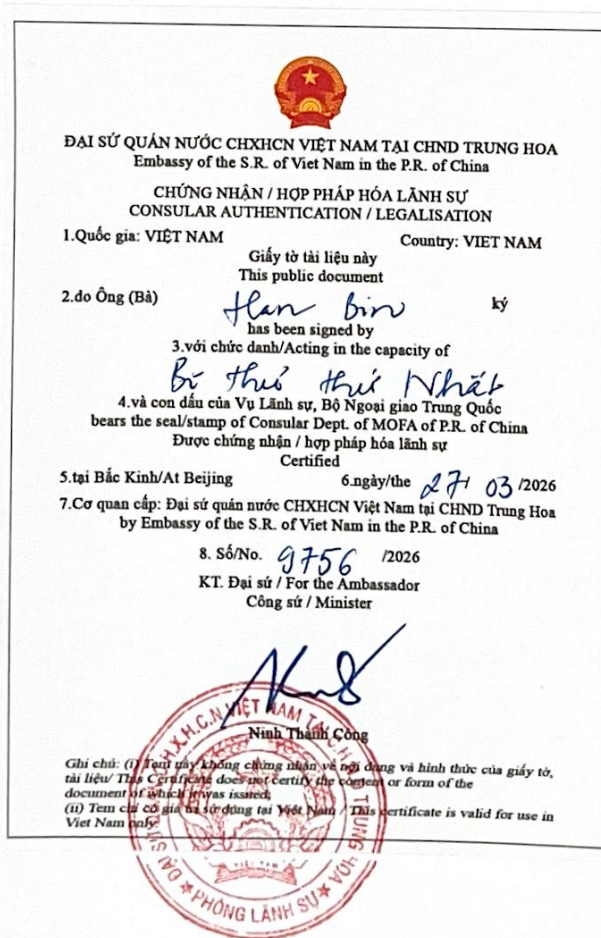 ĐẠI SỨ QUÁN NƯỚC CHXHCN VIỆT NAM TẠI CHND TRUNG HOA
Embassy of the S.R. of Viet Nam in the P.R. of China
CHỨNG NHẬN / HỢP PHÁP HÓA LÃNH SỰ
CONSULAR AUTHENTICATION / LEGALISATION
1.Quốc gia: VIỆT NAM Country: VIET NAM
Giấy tờ tài liệu này
This public document
2.do Ông (Bà) Han Bin ký
has been signed by
3.với chức danh/Acting in the capacity of
Bí thư thứ Nhất
4.và con dấu của Vụ Lãnh sự, Bộ Ngoại giao Trung Quốc
bears the seal/stamp of Consular Dept. of MOFA of P.R. of China
Được chứng nhận / hợp pháp hóa lãnh sự
Certified
5.tại Bắc Kinh/At Beijing 6.ngày/the 27 03 /2026
7.Cơ quan cấp: Đại sứ quán nước CHXHCN Việt Nam tại CHND Trung Hoa
by Embassy of the S.R. of Viet Nam in the P.R. of China
8. Số/No. 9756 /2026
KT. Đại sứ / For the Ambassador
Công sứ / Minister
Ninh Thành Công
Ghi chú: (i) Tem này không chứng nhận về nội dung và hình thức của giấy tờ,
tài liệu/ This Certificate does not certify the content or form of the
document of which it was issued;
(ii) Tem chỉ có giá trị sử dụng tại Việt Nam / This certificate is valid for use in
Viet Nam only
ĐẠI SỨ QUÁN C.H.X.H.C.N VIỆT NAM TẠI C.H.N.D TRUNG HOA
VIỆT NAM
★ PHÒNG LÃNH SỰ ★